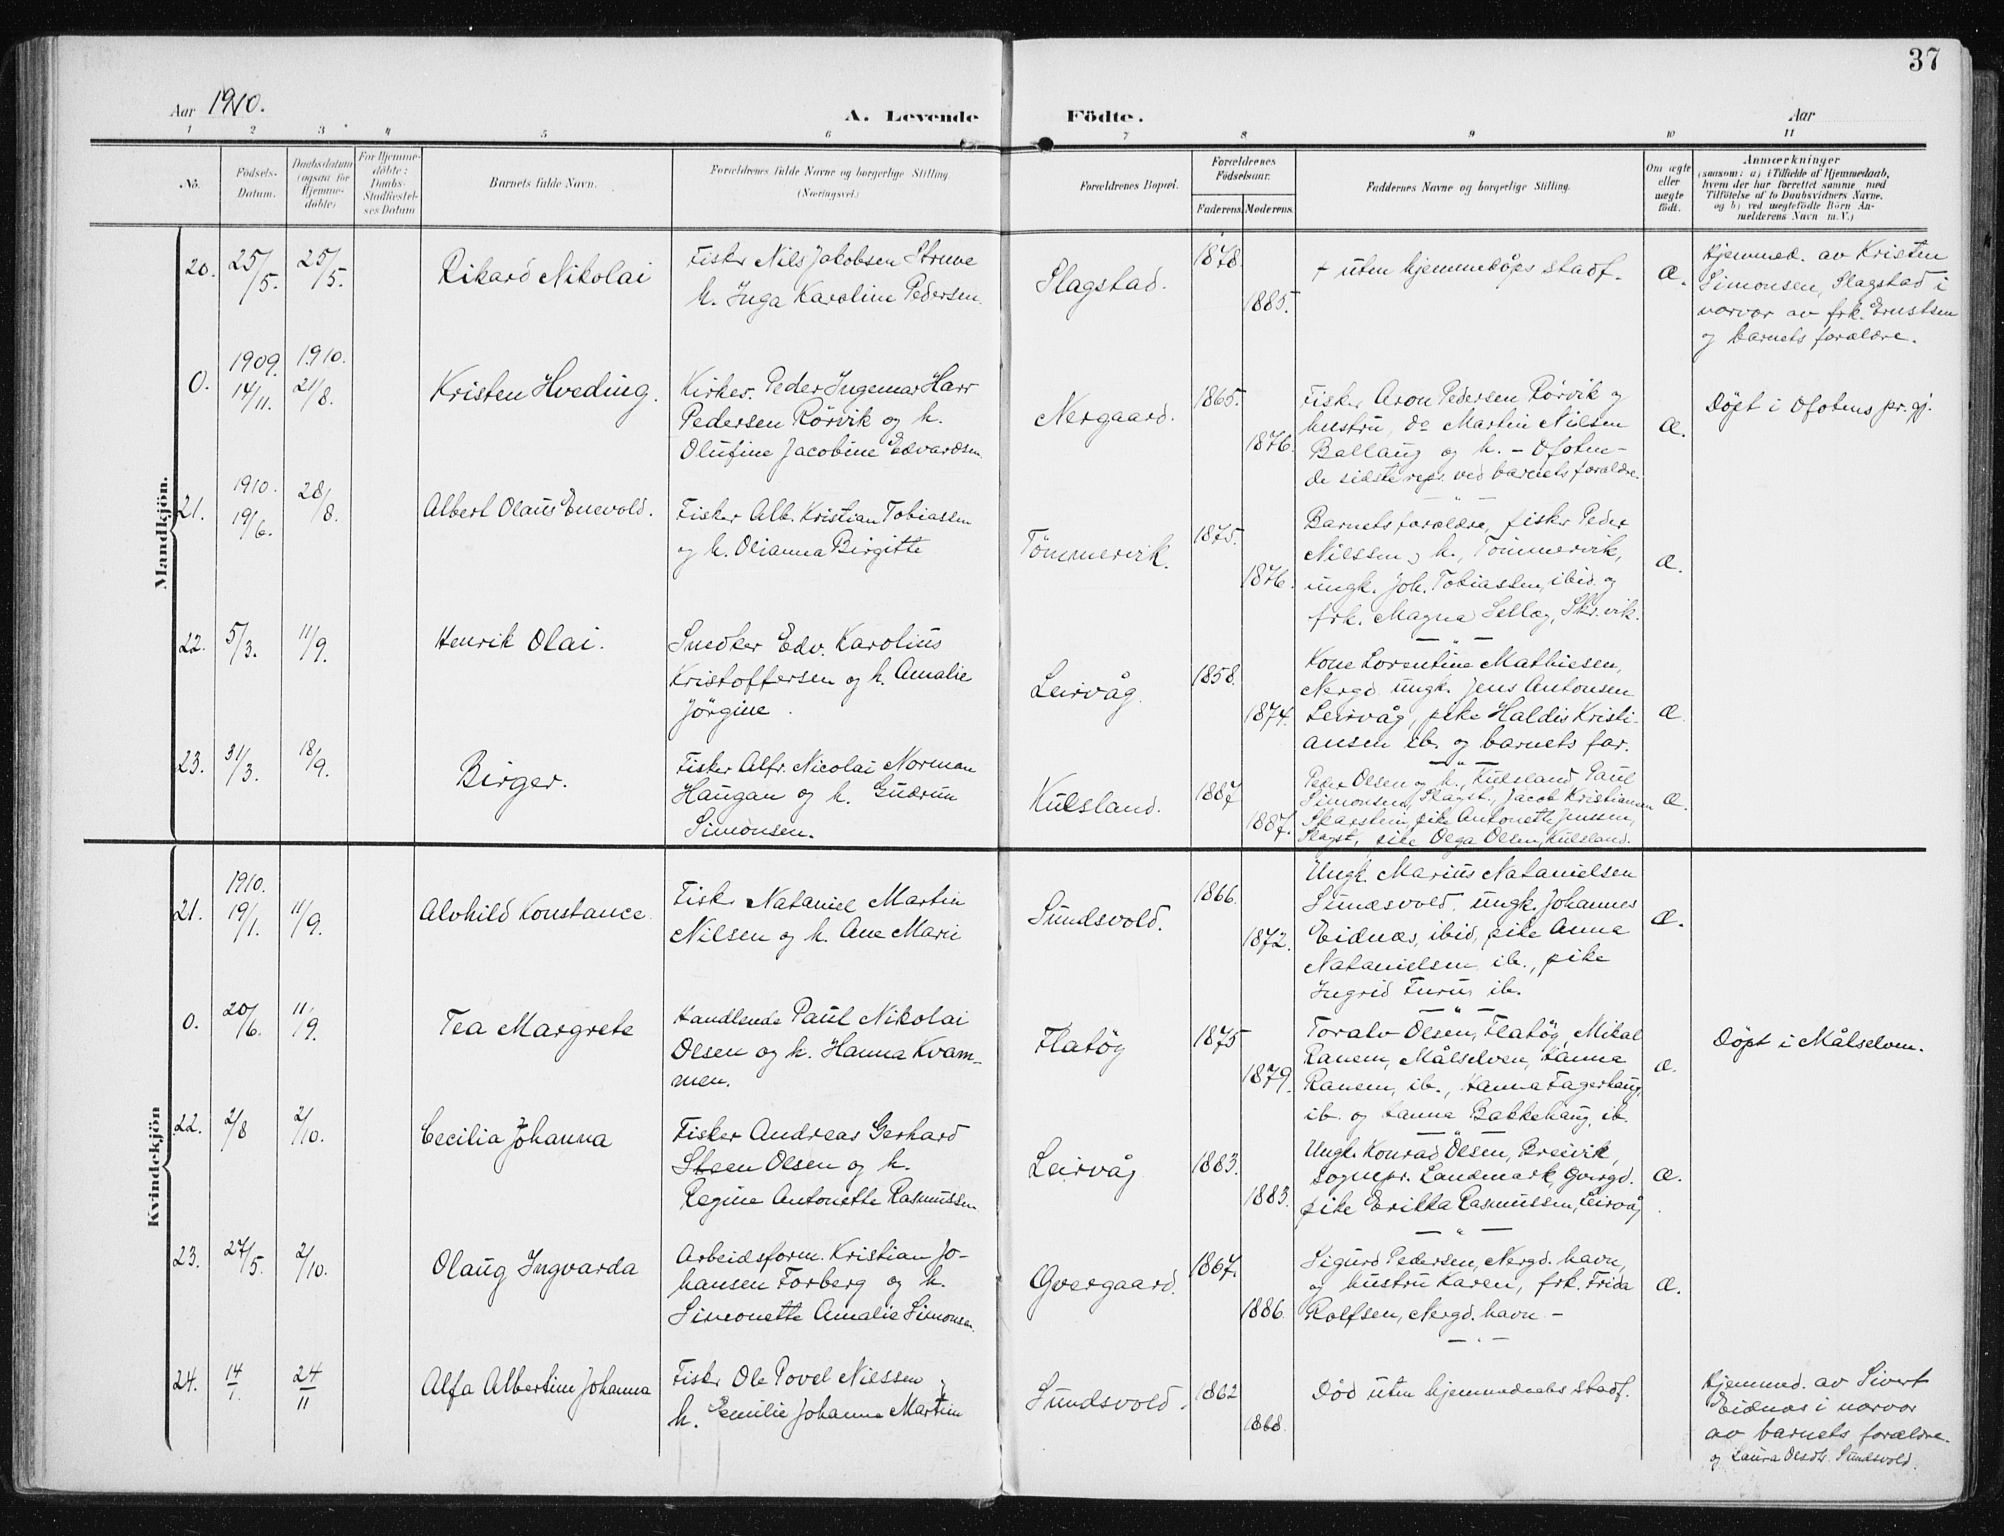 37
Aar 1910.
A. Levende Födte.
Aar
1 2 3 4 5 6 7 8 9 10 11
No.
Födsels-
Datum.
Daabsdatum
(ogsaa for
Hjemme-
döbte)
For Hjemme-
döbte:
Daabs-
Stadfæstel-
ses Datum
Barnets fulde Navn.
Forældrenes fulde Navne og borgerlige Stilling
(Næringsvei.)
Forældrenes Bopæl.
Forældrenes
Födselsaar.
Faderens. Moderens.
Faddernes Navne og borgerlige Stilling.
Om ægte
eller
uægte
födt.
Anmærkninger
(saasom: a) i Tilfælde af Hjemmedaab,
hvem der har forrettet samme med
Tilföielse af to Daabsvidners Navne.
og b) ved uægtefödte Börn An-
melderens Navn m. V.)
Mandkjön.
20. 25/5. 25/5.
Rikard Nikolai
Fisker Nils Jakobsen Struve
h. Inga Karoline Pedersen.
Slagstad.
1878.
1885.
+ uten hjemmedåps stadf.
Æ.
Hjemmed. av Kristen
Simonsen, Slagstad i
nærvær av frk. Ernstsen
og barnets forældre.
0. 1909. 14/11. 1910. 21/8.
Kristen Hveding.
Kirkes. Peder Ingemar Harr
Pedersen Rörvik og h.
Olufine Jacobine Edvardsen
Nergaard.
1865.
1876.
Fisker Aron Pedersen Rörvik og
hustru, do Martin Nilsen
Ballang og h. – Ofoten –
de sidste reps. ved barnets forældre.
Æ.
Döpt i Ofotens pr.gj.
21. 1910. 19/6. 28/8.
Albert Olaus Enevold.
Fisker Alb. Kristian Tobiassen
og h. Olianna Birgitte
Tömmervik.
1875.
1876.
Barnets forældre, fisker Peder
Nilssen og h., Tömmervik,
ungk. Joh. Tobiassen, ibid. og
frk. Magna Selläg, Skr.vik.
Æ.
22. 5/3. 11/9.
Henrik Olai.
Snedker Edv. Karolius
Kristoffersen og h. Amalie
Jörgine.
Leirvåg.
1858.
1874.
Kone Lorentine Mathiesen,
Nergd. ungk. Jens Antonsen
Leirvåg, pike Haldis Kristi-
ansen ib. og barnets far.
Æ.
23. 31/3. 18/9.
Birger.
Fisker Alfr. Nicolai Norman
Haugan og h. Gudrun
Simonsen.
Kulsland.
1887
1887.
Peder Olsen og h., Kulsland, Paul
Simonsen, Slagst., Jacob Kristiansen
Skarstein, pike Antonette Jenssen,
Slagst., pike Olga Olsen, Kulsland.
Æ.
Kvindekjön
21. 1910. 19/1. 11/9.
Alvhild Konstance
Fisker Nataniel Martin
Nilsen og h. Ane Marie
Sundsvold.
1866.
1872.
Ungk. Marius Natanielsen
Sundsvold, ungk. Johannes
Eidnæs, ibid, pike Anna
Natanielsen ib., pike
Ingrid Furu, ib.
Æ.
0. 20/6. 11/9.
Tea Margrete
Handlende Paul Nikolai
Olsen og h. Hanna Kvam-
men.
Flatöy
1875
1879.
Toralv Olsen, Flatöy, Mikal
Ranem, Målselven, Hanna
Ranem, ib., Hanna Fagerhaug,
ib. og Hanna Bakkehaug, ib.
Æ.
Döpt i Målselven.
22. 2/8 2/10.
Cecilia Johanna
Fisker Andreas Gerhard
Steen Olsen og h.
Regine Antonette Rasmussen
Leirvåg
1883.
1883.
Ungk. Konrad Olsen, Breivik,
sognepr. Landmark, Gvergd.
pike Erikka Rasmussen, Leirvåg
Æ.
23. 27/5. 2/10.
Olaug Ingvarda
Arbeidsform. Kristian Jo-
hansen Forberg og h.
Simonette Amalie Simonsen.
Gvergaard.
1867.
1886.
Sigurd Pedersen, Nergd. havn,
og hustru Karen, frk. Frida
Rolfsen, Nergd. havn –
Æ.
24. 14/1. 24/11
Alfa Albertine Johanna
Fisker Ole Povel Nilssen og
h. Emilie Johanna Martine
Sundsvold.
1862
1868.
Död uten hjemmedåbs stadf.
Hjemmed. av Sivert
Eidnæs i nærvær
av barnets forældre
og Laura Olsdtr. Sundsvold.